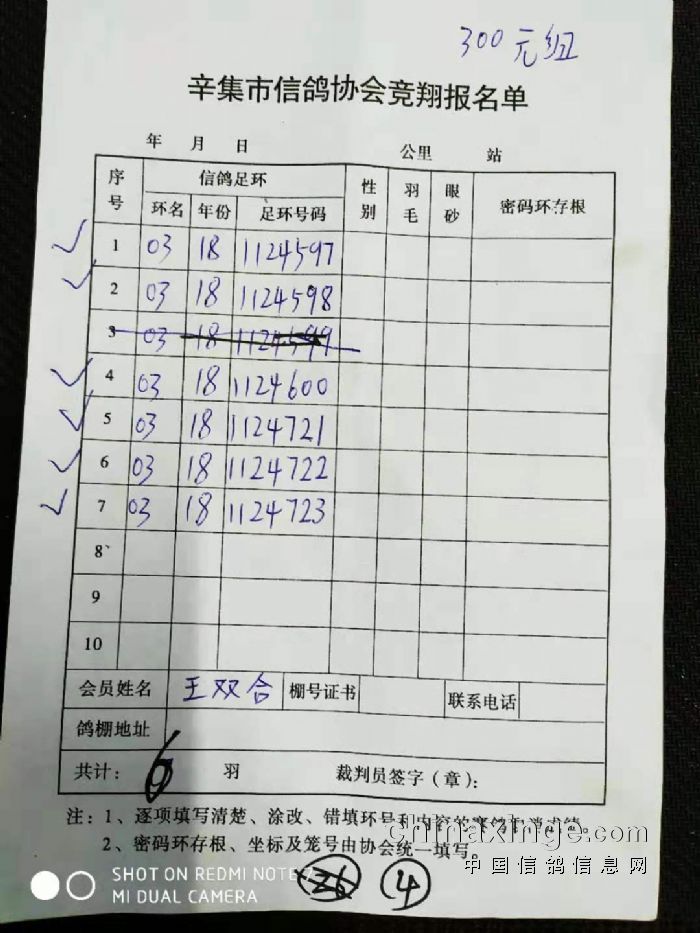 300元组
辛集市信鸽协会竞翔报名单
年 月 日 公里 站
序号 信鸽足环 性别 羽毛 眼砂 密码环存根
环名 年份 足环号码
1 03 18 1124597
2 03 18 1124598
3 03 18 1124599
4 03 18 1124600
5 03 18 1124721
6 03 18 1124722
7 03 18 1124723
8
9
10
会员姓名 王双合 棚号证书 联系电话
鸽棚地址
共计: 6 羽 裁判员签字(章):
注:1、逐项填写清楚、涂改、错填环号和内容的赛鸽
2、密码环存根、坐标及笼号由协会统一填写。
chinaxinge.com
中国信鸽信息网
SHOT ON REDMI NOTE 7
MI DUAL CAMERA
26 4